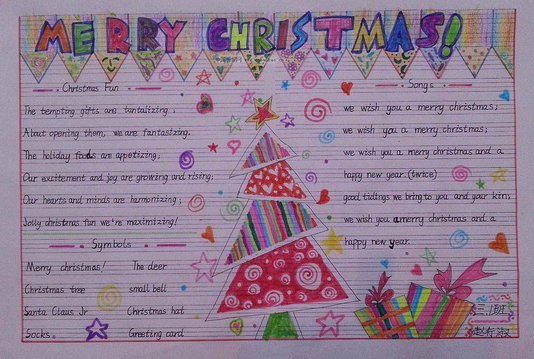 MERRY CHRISTMAS!
Christmas Fun
The tempting gifts are tantalizing;
About opening them, we are fantasizing.
The holiday foods are appetizing;
Our excitement and joy are growing and rising;
Our hearts and minds are harmonizing;
Jolly christmas fun we're maximizing!
Symbols
Merry christmas! The deer
Christmas tree small bell
Santa Claus Jr Christmas hat
Socks. Greeting card
Songs
we wish you a merry christmas;
we wish you a merry christmas;
we wish you a merry christmas and a
happy new year.(twice)
good tidings we bring to you and your kin;
we wish you a merry christmas and a
happy new year.